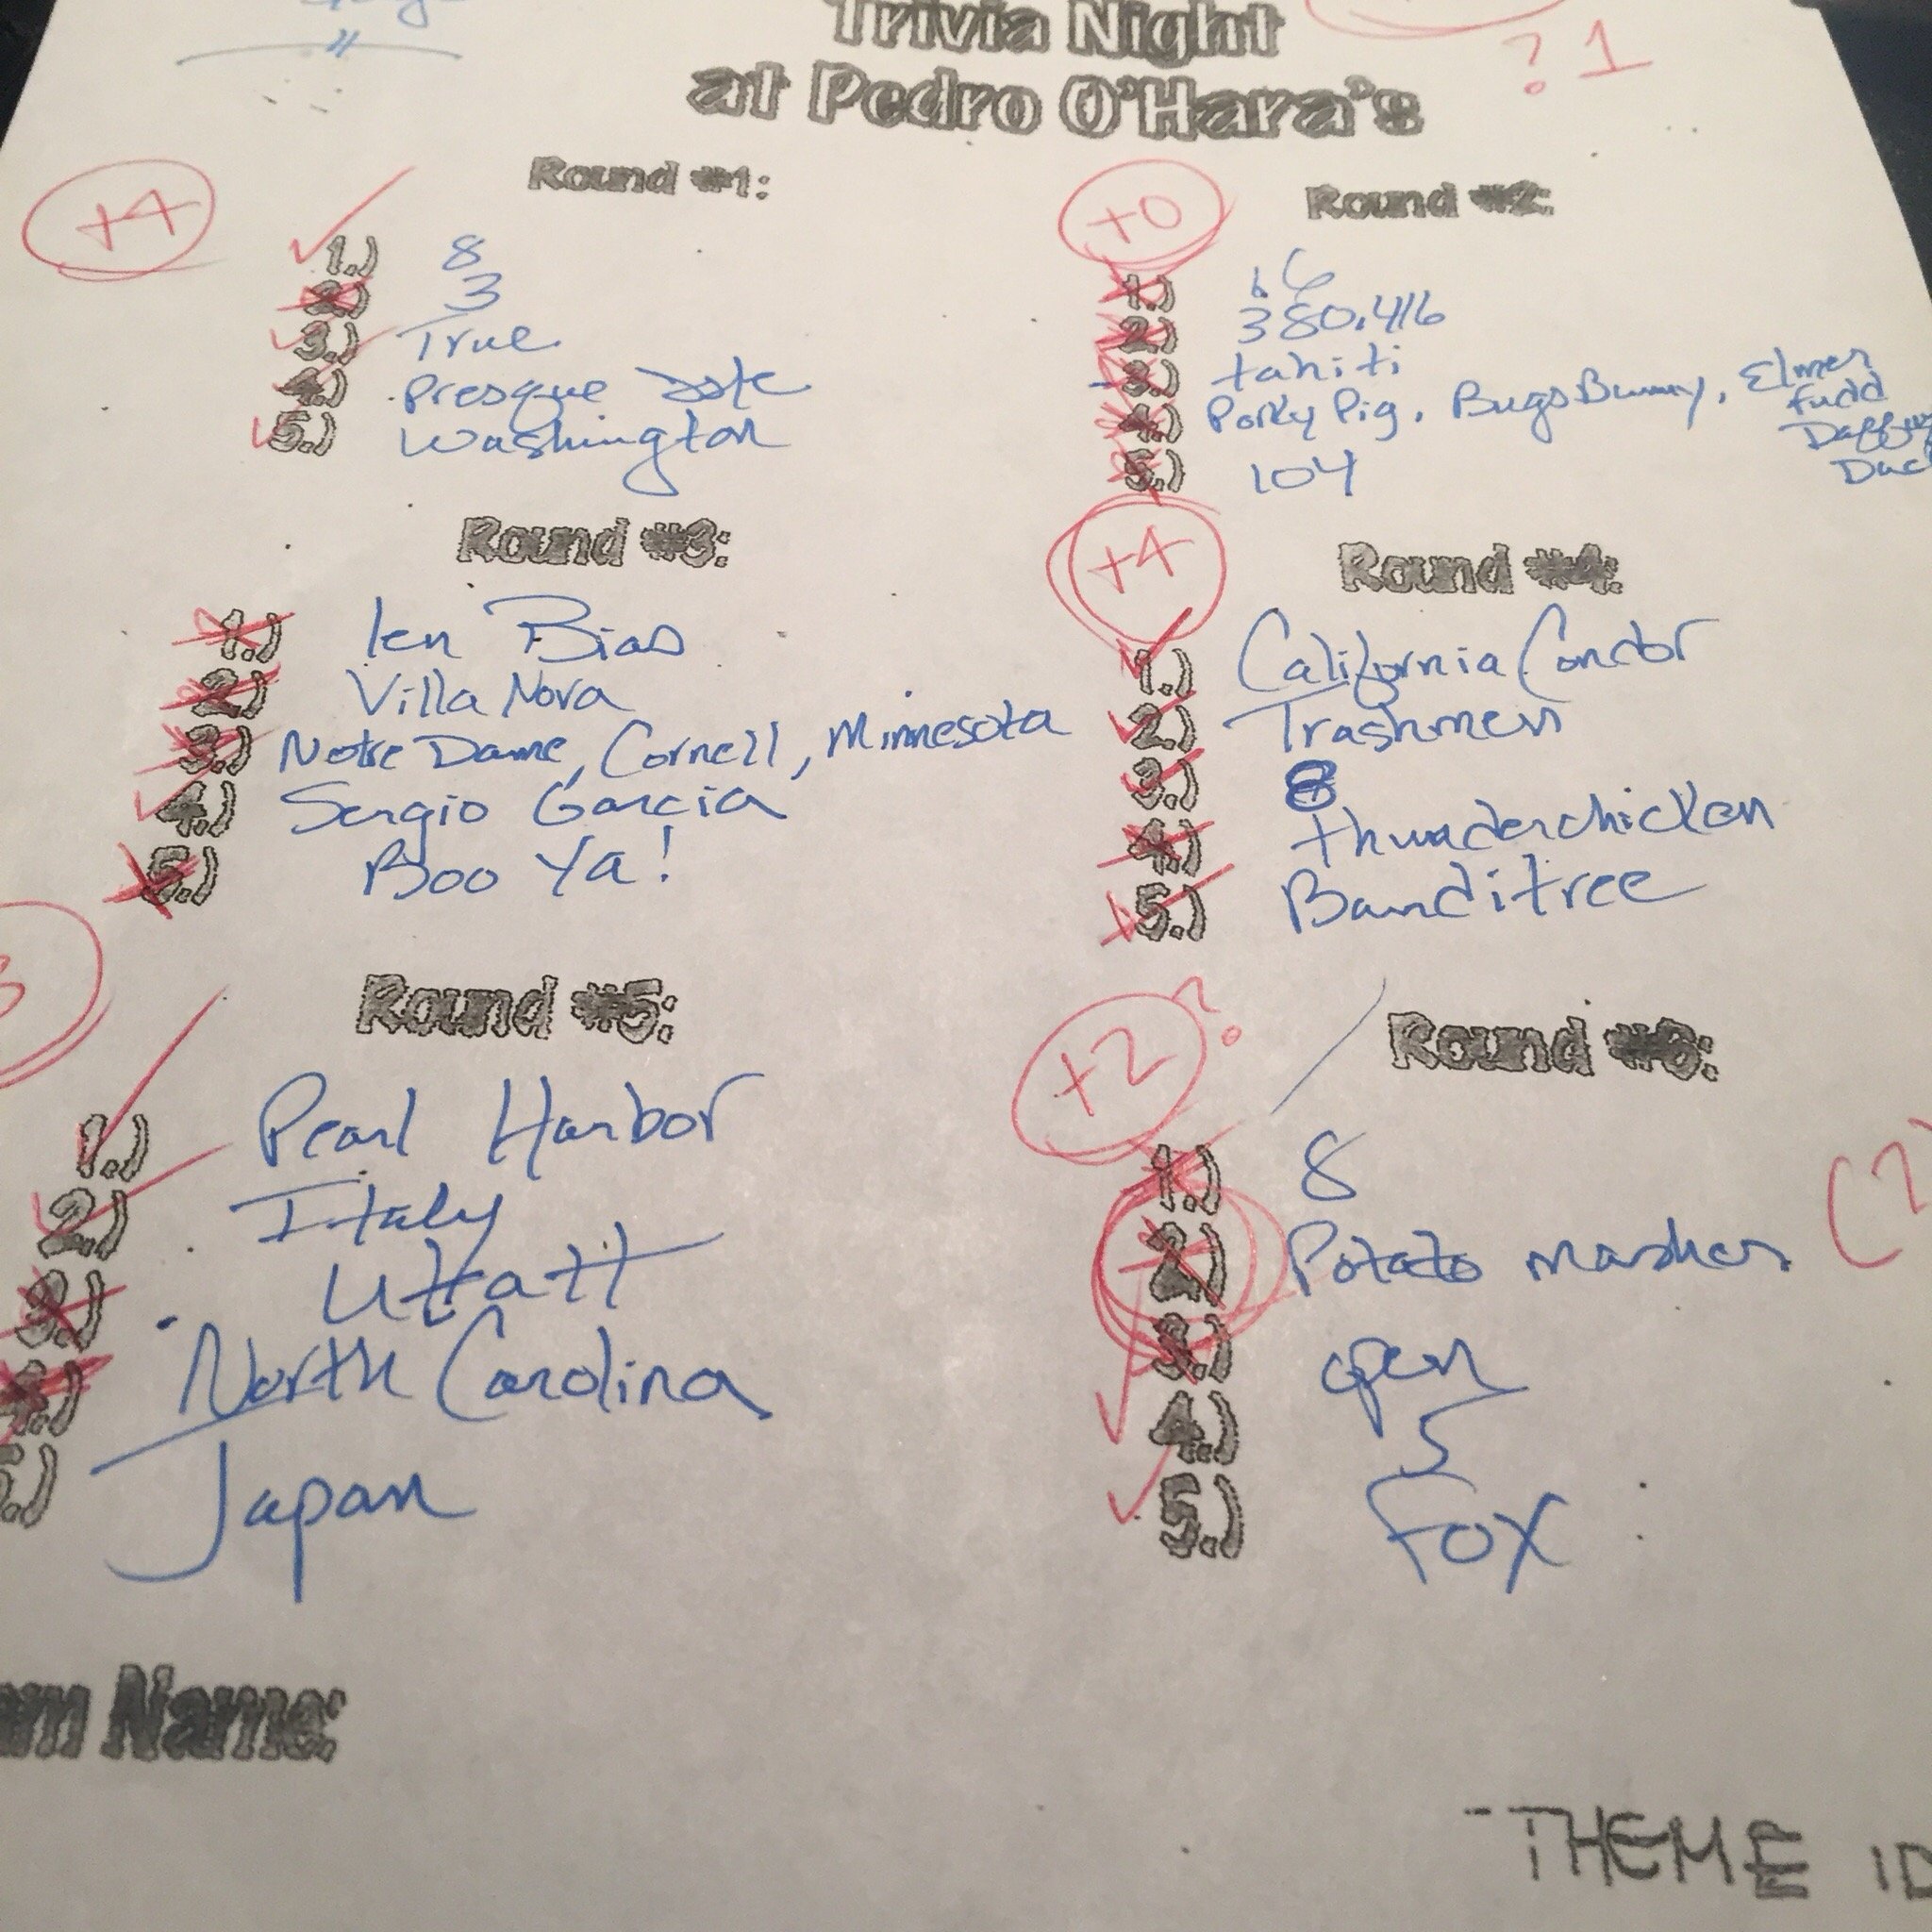 Trivia Night
at Pedro O'Hara's
? 1
Round #1:
+4
1.) 8
2.) 3
3.) True
4.) Presque Isle
5.) Washington
Round #2:
+0
1.) 16
2.) 380,416
3.) tahiti
4.) Porky Pig, Bugs Bunny, Elmer
Fudd
Daffy
Duc
5.) 104
Round #3:
1.) len Bias
2.) Villa Nova
3.) Notre Dame, Cornell, Minnesota
4.) Sergio Garcia
5.) Boo Ya!
Round #4:
+4
1.) California Condor
2.) Trashmen
3.) 8
4.) thunderchicken
5.) Banditree
3
Round #5:
1.) Pearl Harbor
2.) Italy
3.) Uttatt
4.) North Carolina
5.) Japan
Round #6:
+2 ?
1.) 8
2.) Potato masher (?
3.) open
4.) 5
5.) Fox
am Name:
-THEME ID